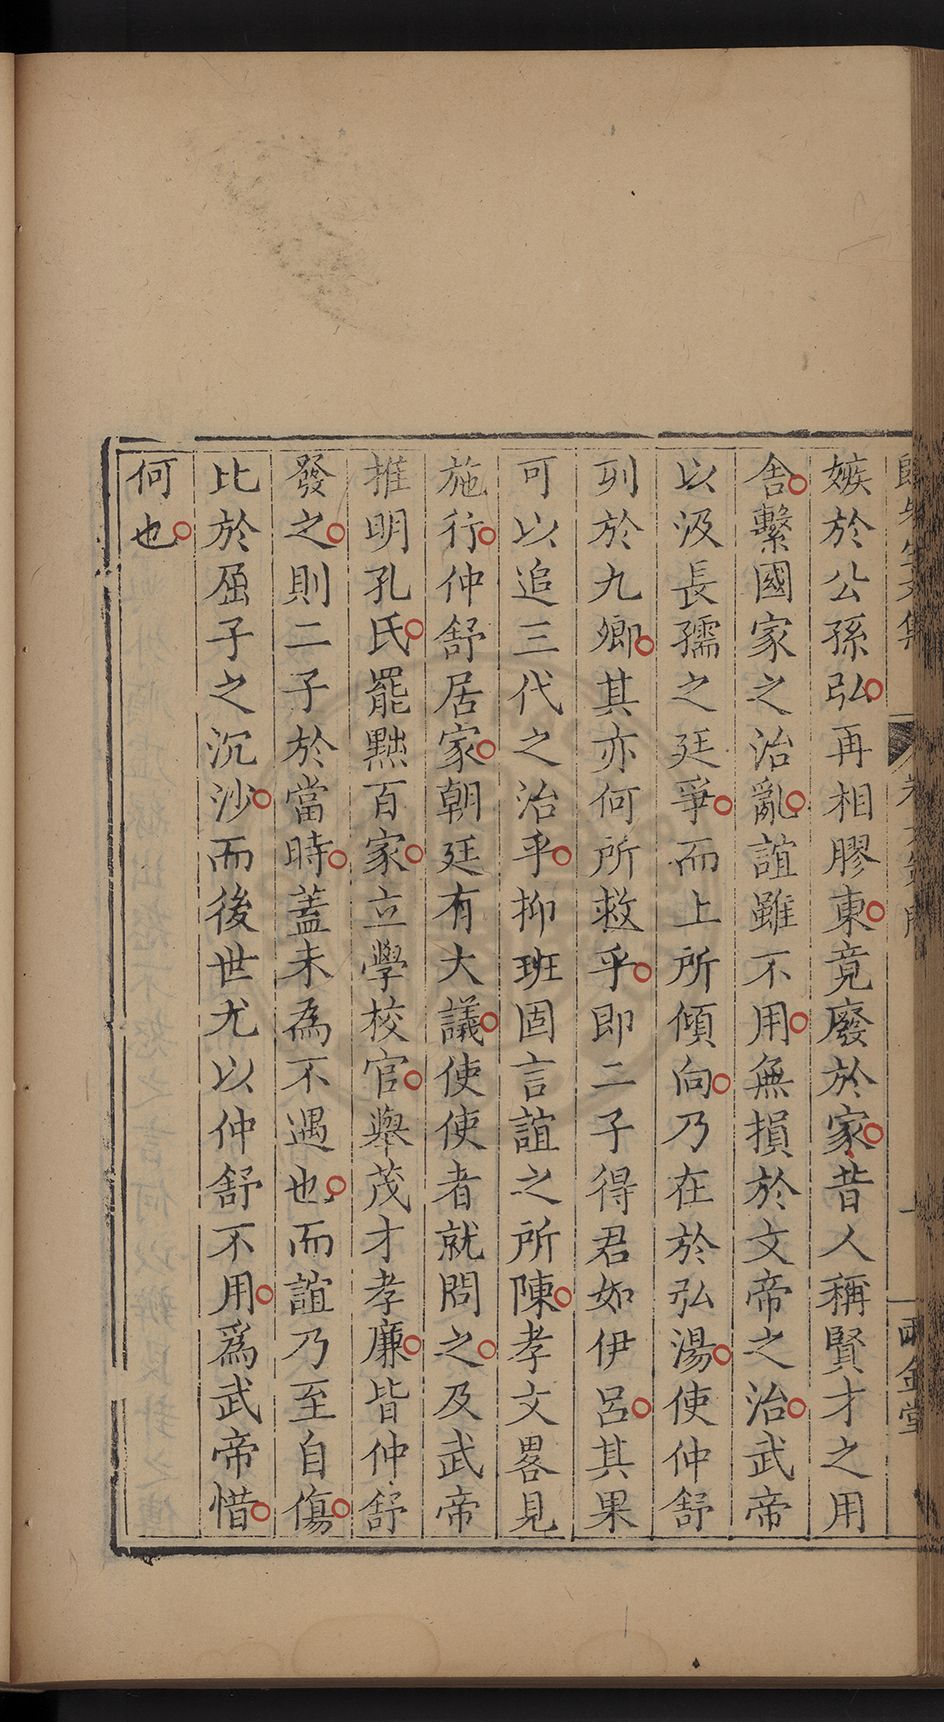 嫉於公孫弘再相膠東竟廢於家昔人稱賢才之用
舍繫國家之治亂誼雖不用無損於文帝之治武帝
以汲長孺之廷爭而上所傾向乃在於弘湯使仲舒
列於九卿其亦何所救乎即二子得君如伊呂其果
可以追三代之治乎抑班固言誼之所陳孝文畧見
施行仲舒居家朝廷有大議使使者就問之及武帝
推明孔氏罷黜百家立學校官舉茂才孝廉皆仲舒
發之則二子於當時蓋未為不遇也而誼乃至自傷
比於屈子之沉沙而後世尤以仲舒不用爲武帝惜
何也